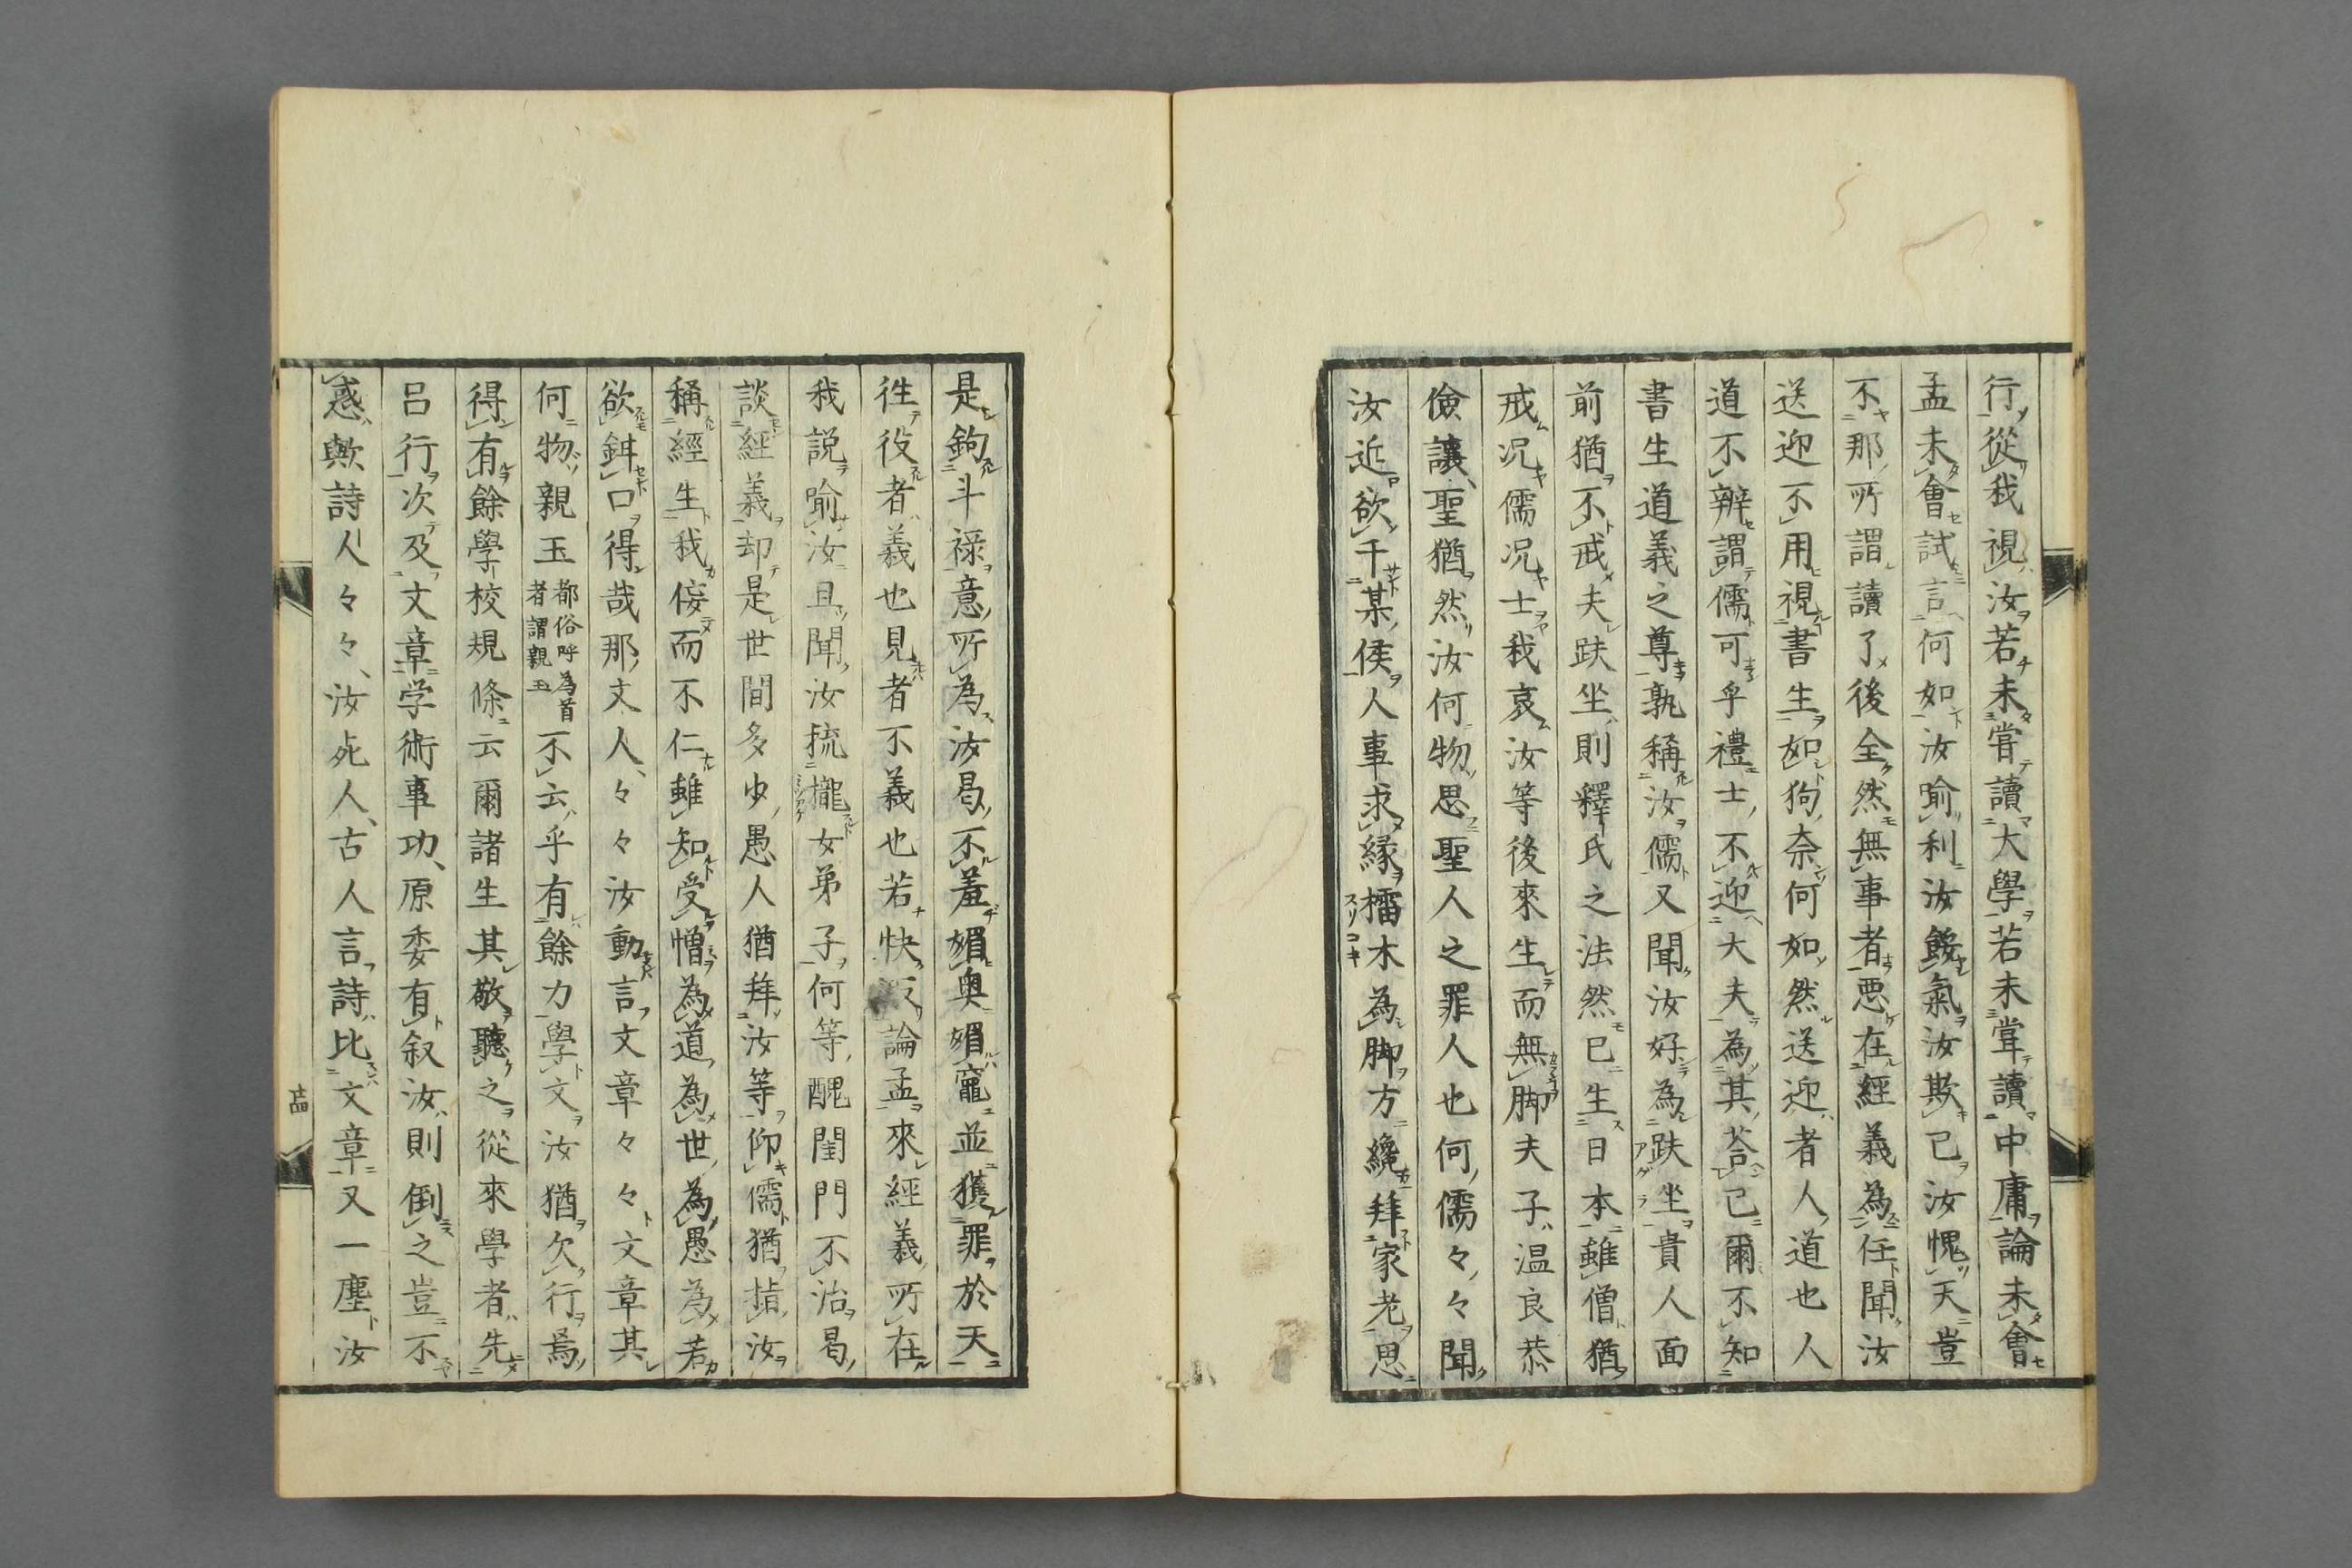 行從我視汝若未嘗讀大學若未嘗讀中庸論未會
孟未會試言何如汝喻利汝餒氣汝欺已汝愧天豈
不那所謂讀了後全然無事者悪在經義為任聞汝
送迎不用視書生如狗奈何如然送迎者人道也人
道不辨謂儒可乎禮士不迎大夫為其荅已爾不知
書生道義之尊孰稱汝儒又聞汝好為趺坐貴人面
前猶不戒夫趺坐則釋氏之法然已生日本雖僧猶
戒况儒况士我哀汝等後來生而無脚夫子温良恭
儉讓聖猶然汝何物思聖人之罪人也何儒々々聞
汝近欲干某侯人事求縁擂木為脚方纔拜家老思
是鉤斗禄意所為汝曷不羞媚奥媚竈並獲罪於天
徃役者義也見者不義也若快論孟來經義所在
我説喻汝且聞汝梳櫳女弟子何等醜閨門不治曷
談經義却是世間多少愚人猶拜汝等仰儒猶指汝
稱經生我侫而不仁雖知受憎為道為世為愚為若
欲鉗口得哉那文人々々汝動言文章々々文章其
何物親玉都俗呼為首者謂親玉不云乎有餘力學文汝猶欠行焉
得有餘學校規條云爾諸生其敬聽之從來學者先
呂行次及文章学術事功原委有叙汝則倒之豈不
惑歟詩人々々汝死人古人言詩比文章又一塵汝